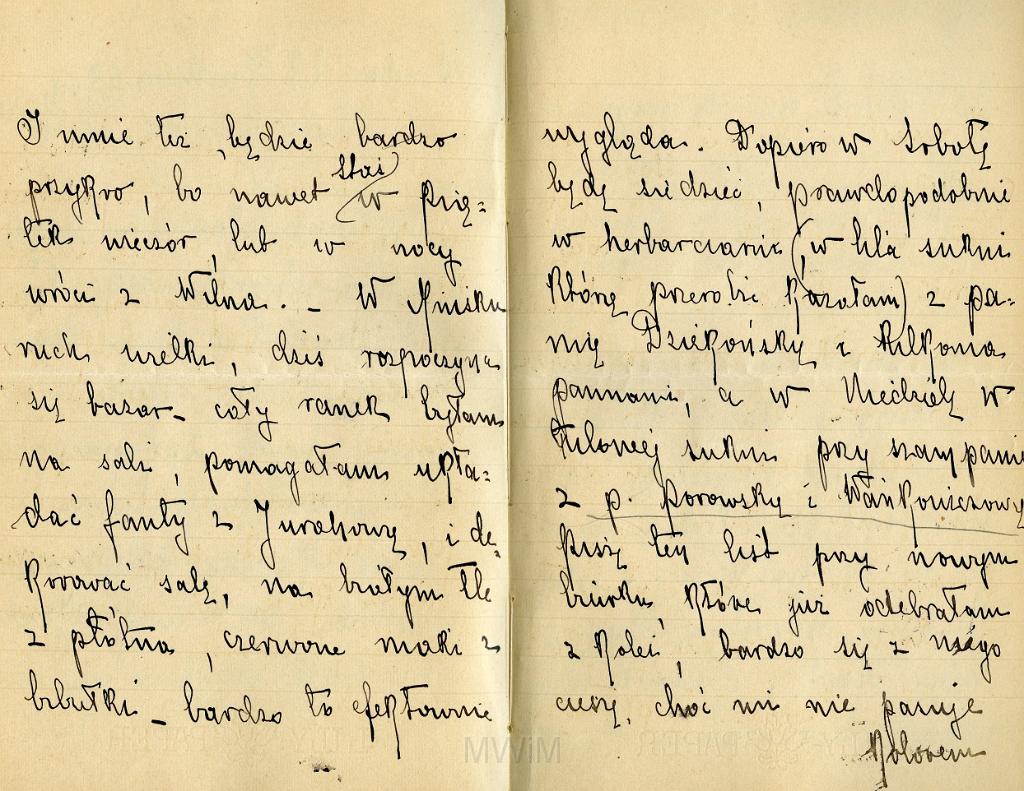 I mnie też będzie bardzo
przykro, bo nawet Staś w pią-
tek wieczór, lub w nocy
wróci z Wilna. – W Mińsku
ruch wielki, dziś rozpoczyna
się bazar – cały ranek byłam
na sali, pomagałam ukła-
dać fanty z Jurahową, i de-
korować salę, na białym tle
z płótna, czerwone maki z
bibułki – bardzo to efektownie
wygląda. Dopiero w Sobotę
będę siedzieć, prawdopodobnie
w herbaciarni (w lila sukni
którą przerobić kazałam) z pa-
nią Dziekońską i kilkoma
pannami, a w Niedzielę w
sukni przy szampanie
z p. Porowską i Wańkowiczową
Piszę ten list przy nowym
biurku, które już odebrałam
z kolei, bardzo się z niego
cieszę, choć mi nie pasuje
kolorem
MWiM